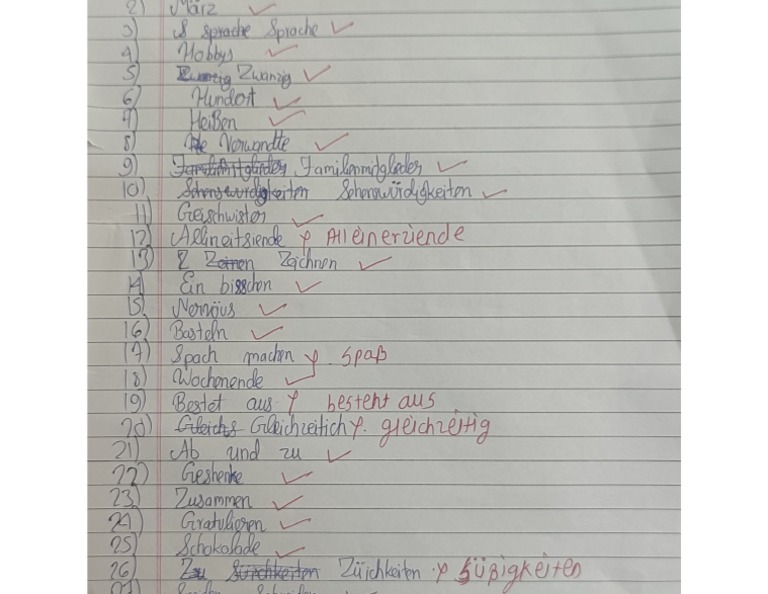 2) März ✓
3) S sprache Sprache ✓
4) Hobbys ✓
5) Zwanzig Zwanzig ✓
6) Hundert ✓
7) Heißen ✓
8) Verwandte ✓
9) Familienmitglieder ✓
10) Sehenswürdigkeiten ✓
11) Geischwister ✓
12) Allineitsiende Alleinerziende
13) Z Zeinen Zeichnen ✓
14) Ein bisschen ✓
15) Nervöus ✓
16) Basteln ✓
17) Spach machen . spaß
18) Wochenende ✓
19) Bestet aus besteht aus
20) Gleichs Gleichzeitich . gleichzeitig
21) Ab und zu ✓
22) Geshenke ✓
23) Zusammen ✓
24) Gratulieren ✓
25) Schokolade ✓
26) Zu Züichkeiten süßigkeiten